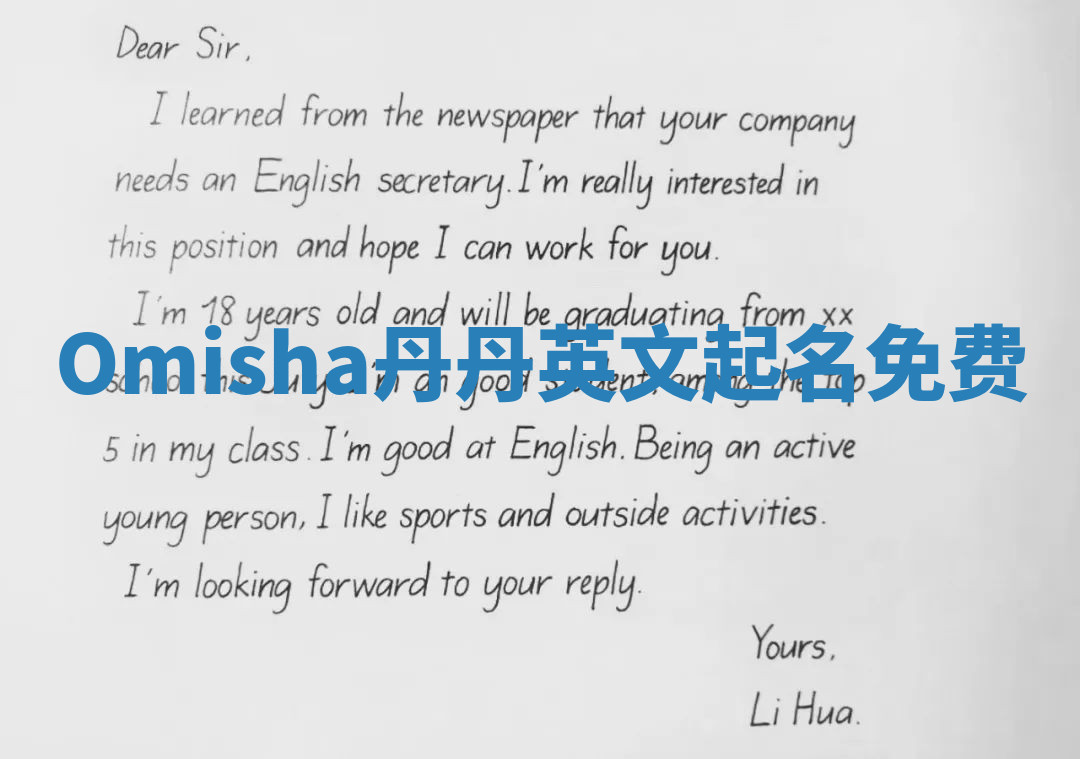 Dear Sir,
I learned from the newspaper that your company
needs an English secretary. I'm really interested in
this position and hope I can work for you.
I'm 18 years old and will be graduating from xx
Omisha丹丹英文起名免费
school this July. I'm an good student, among the top
5 in my class. I'm good at English. Being an active
young person, I like sports and outside activities.
I'm looking forward to your reply.
Yours,
Li Hua.